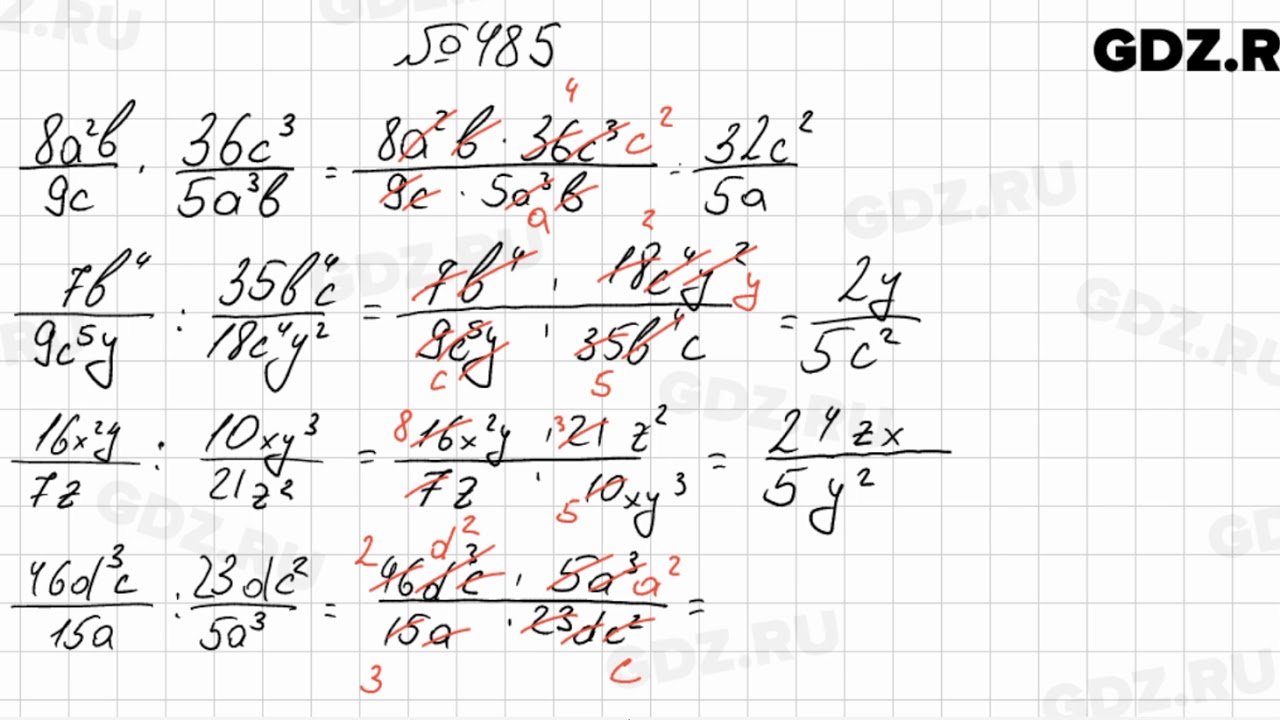 №485
GDZ.R
8a²b/9c · 36c³/5a³b = 8a²b · 36c³/9c · 5a³b = 32c²/5a
7b⁴/9c⁵y : 35b⁴c/18c⁴y² = 7b⁴ · 18c⁴y²/9c⁵y · 35b⁴c = 2y/5c²
16x²y/7z : 10xy³/21z² = 16x²y · 21z²/7z · 10xy³ = 24zx/5y²
46d³c/15a : 23dc²/5a³ = 46d³c · 5a³/15a · 23dc² =